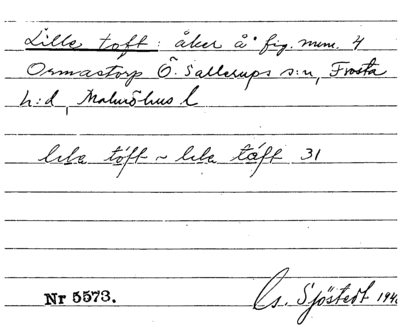 Lille toft: åker å fig. num. 4
Ormastorp Ö. Sallerups s:n, Frosta
h:d, Malmöhus l
lila tóft ~ lila táft 31
Nr 5573. Cs. Sjöstedt 194